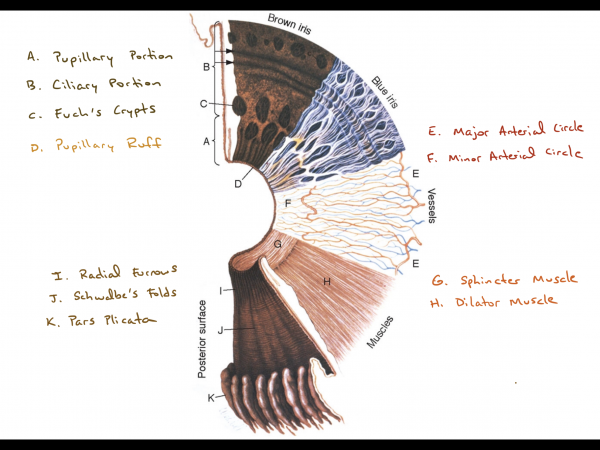 A. Pupillary Portion
B. Ciliary Portion
C. Fuch's Crypts
D. Pupillary Ruff
Brown iris
Blue iris
B
C
A
D
E. Major Arterial Circle
F. Minor Arterial Circle
E
F
Vessels
E
G
I
H
J
K
Muscles
Posterior surface
I. Radial Furrows
J. Schwalbe's Folds
K. Pars Plicata
G. Sphincter Muscle
H. Dilator Muscle